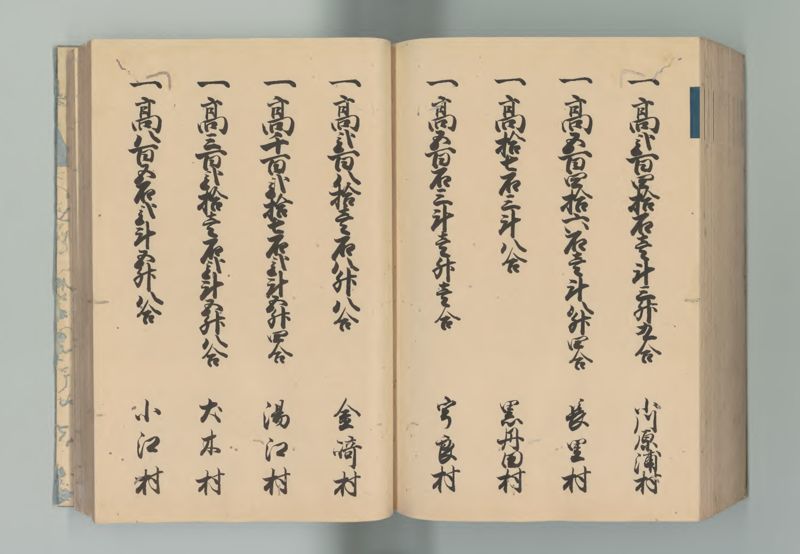 一高弐百四拾石壱斗三升九合 小川原浦村
一高五百四拾六石壱斗八升四合 長里村
一高拾七石三斗八合 黒丹田村
一高五百石三斗壱升壱合 宇良村
一高弐百八拾壱石八升八合 金崎村
一高千百弐拾七石弐斗五升四合 湯江村
一高三百弐拾壱石弐斗五升八合 犬木村
一高八百五石弐斗五升八合 小江村